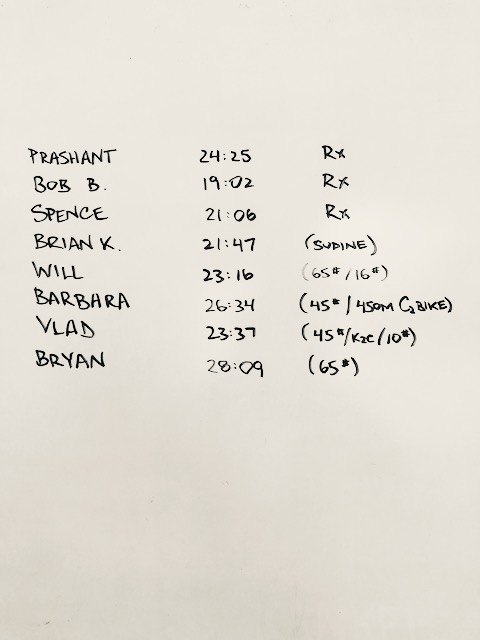 PRASHANT 24:25 Rx
BOB B. 19:02 Rx
SPENCE 21:06 Rx
BRIAN K. 21:47 (SUPINE)
WILL 23:16 (65#/16#)
BARBARA 26:34 (45#/450M C2 BIKE)
VLAD 23:37 (45#/K2C/10#)
BRYAN 28:09 (65#)